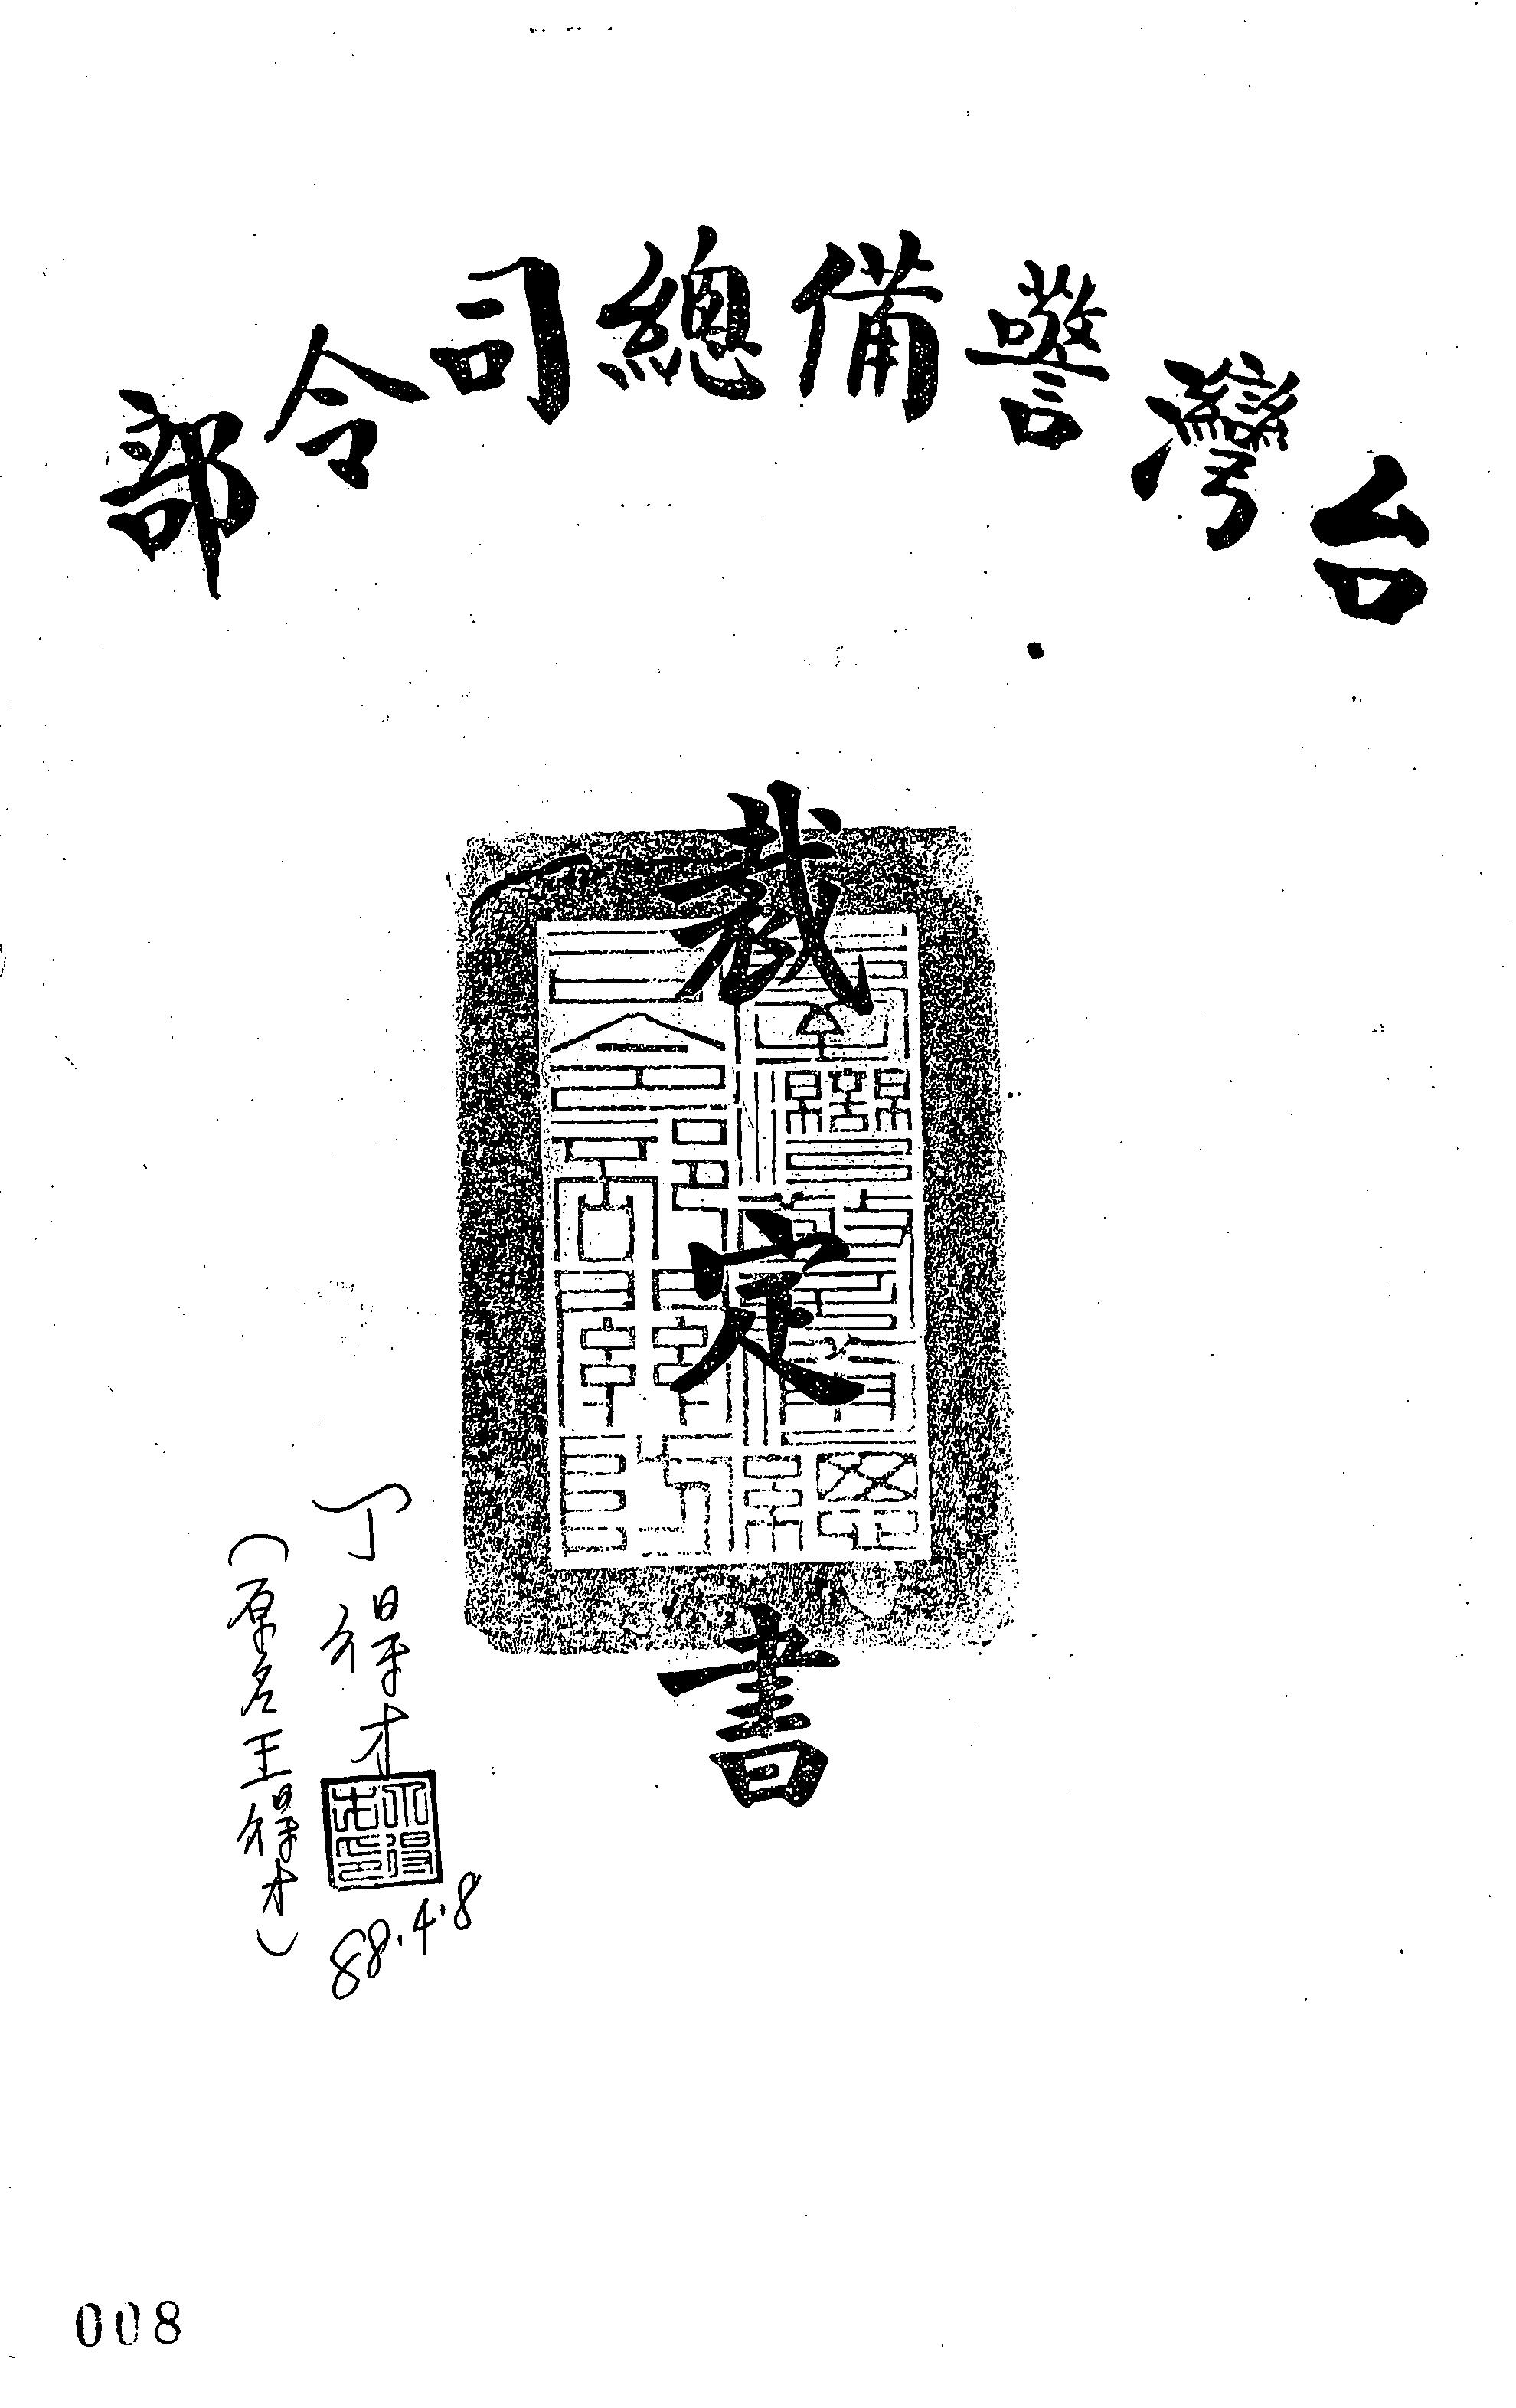 台灣警備總司令部
裁定書
丁得才
88.4.8
(原名王得才)
008